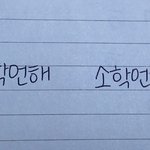 언해 소학언